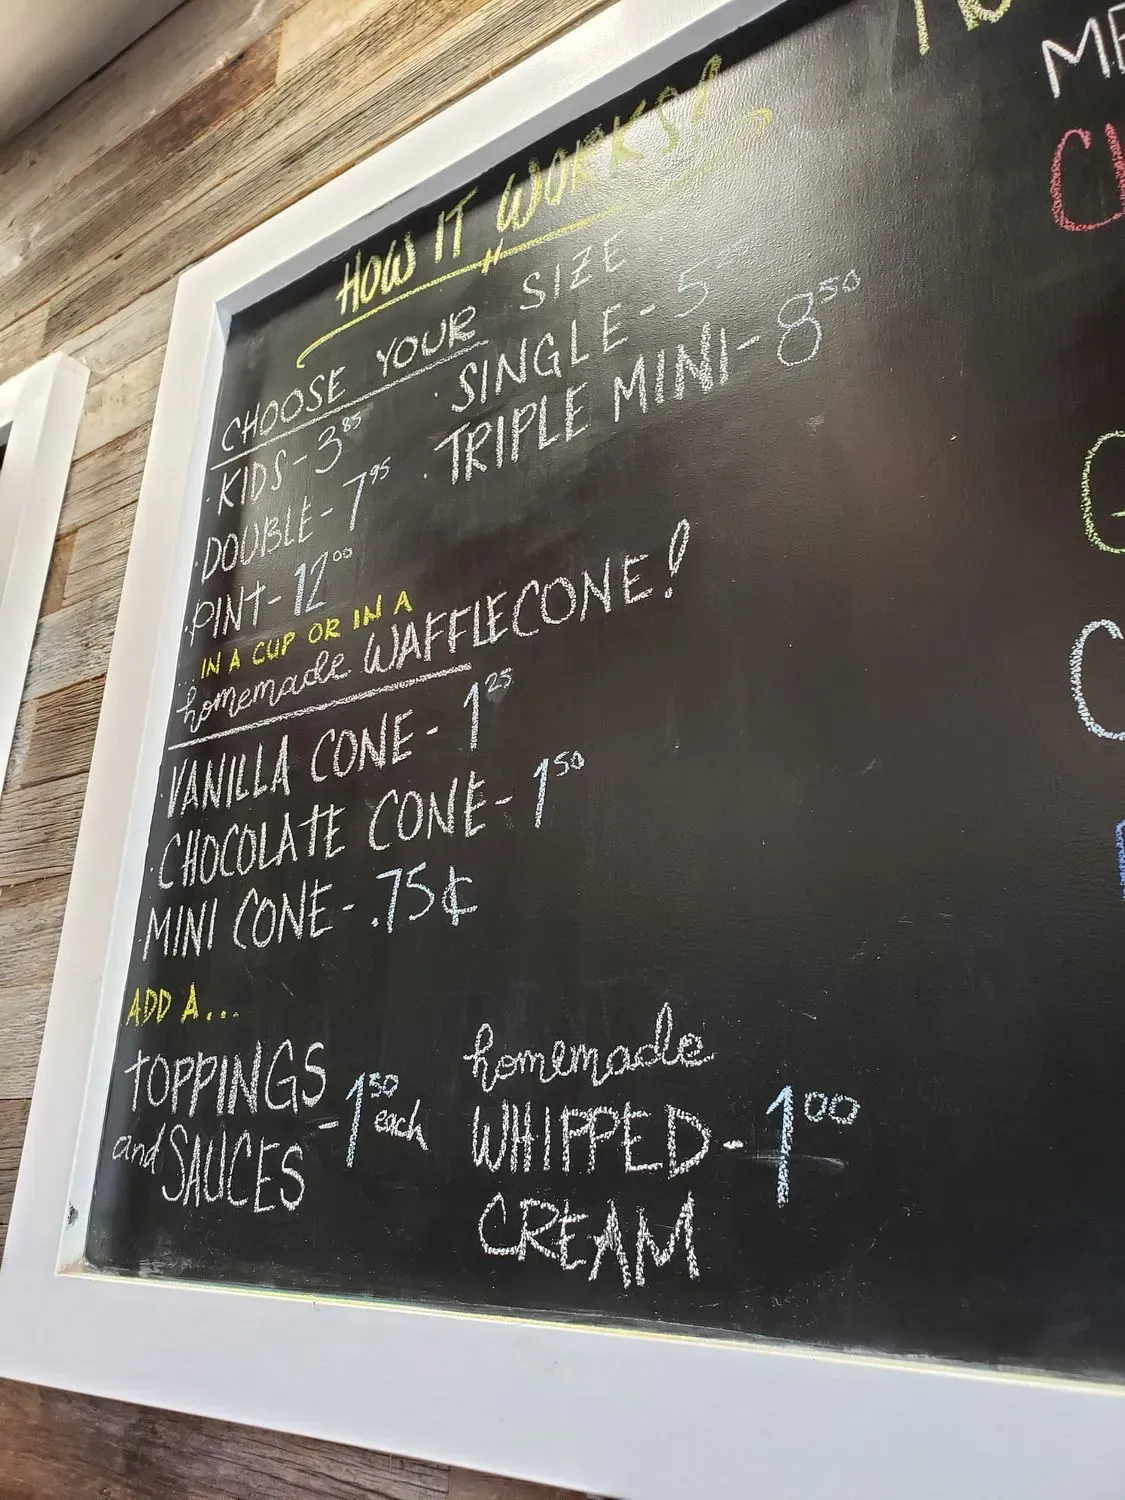 HOW IT WORKS?
CHOOSE YOUR SIZE
· KIDS - 3.85 · SINGLE - 5
· DOUBLE - 7.95 · TRIPLE MINI - 8.50
· PINT - 12.00
... IN A CUP OR IN A
homemade WAFFLECONE!
· VANILLA CONE - 1.25
· CHOCOLATE CONE - 1.50
· MINI CONE - .75¢
ADD A...
TOPPINGS and SAUCES - 1.50 each
homemade WHIPPED CREAM - 1.00